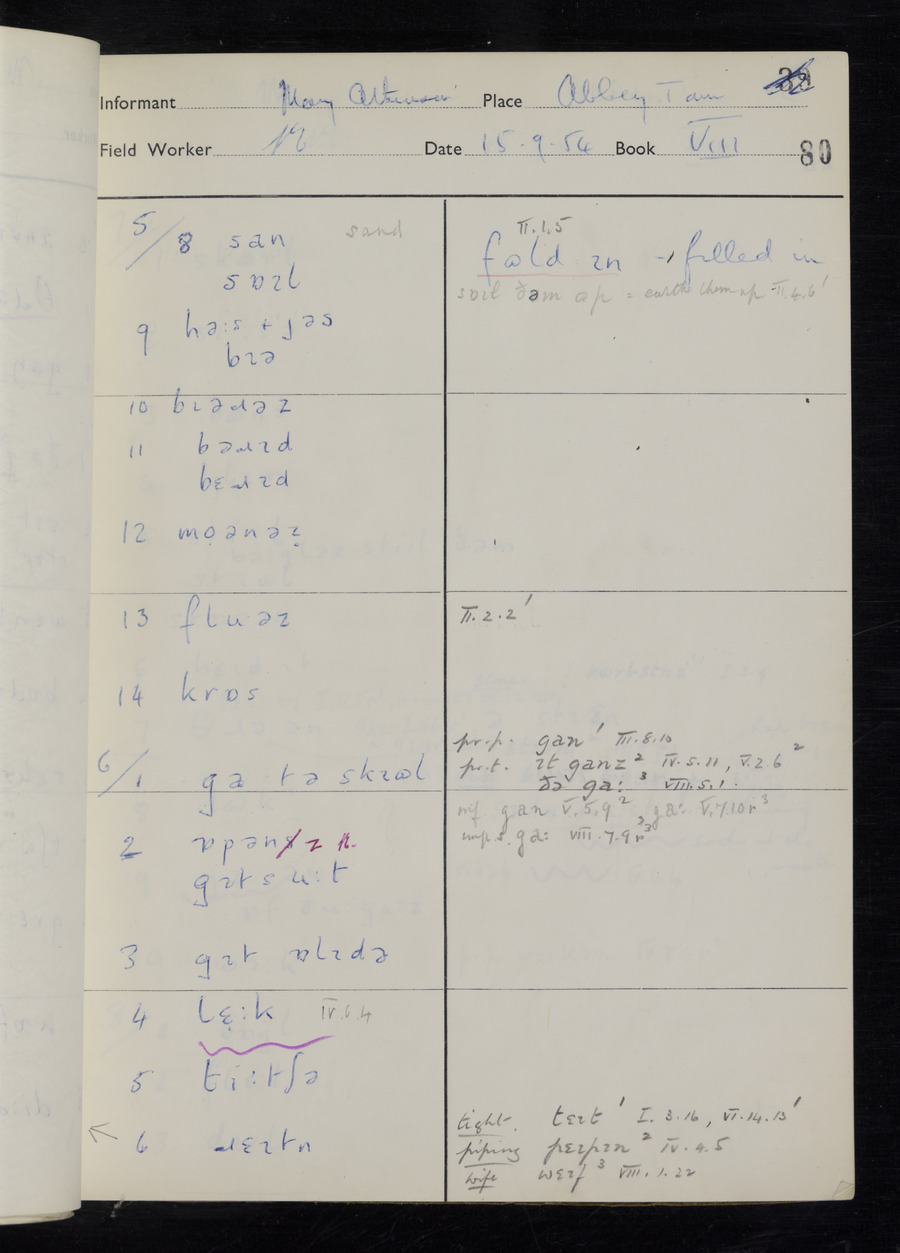 Informant Mary Atkinson Place Abbey Town
Field Worker Date 15.9.54 Book VIII 80
5/8 san sand
sɒɪl
9 hɛəs + fəs
bɪə
10 bɪəɹəz
11 bəɹɪd
bɛɹɪd
12 moənəz
13 fluəz
14 krɒs
6/1 ga tə skɪəl
2 ɒpənz
gɪt su:t
3 gɪt
4 lɛ:k IV.6.4
5 ti:tʃə
6 ɹɛɪtn
II.1.5
fɒld ɪn → filled in
sɒɪl ðəm ɒp = earth them up II.4.6'
II.2.2'
pr.p. gan' III.8.10
pr.t. ɪt ganz² IV.5.11, V.2.6²
ðə ga:³ VIII.5.1.
inf. gan V.5.9² ga: V.7.10r³
imp.s. ga: VIII.7.9r³
tight. tɛɪt' I.3.16, VI.14.13'
piping pɛɪpɪn² IV.4.5
wife wɛɪf³ VIII.1.22